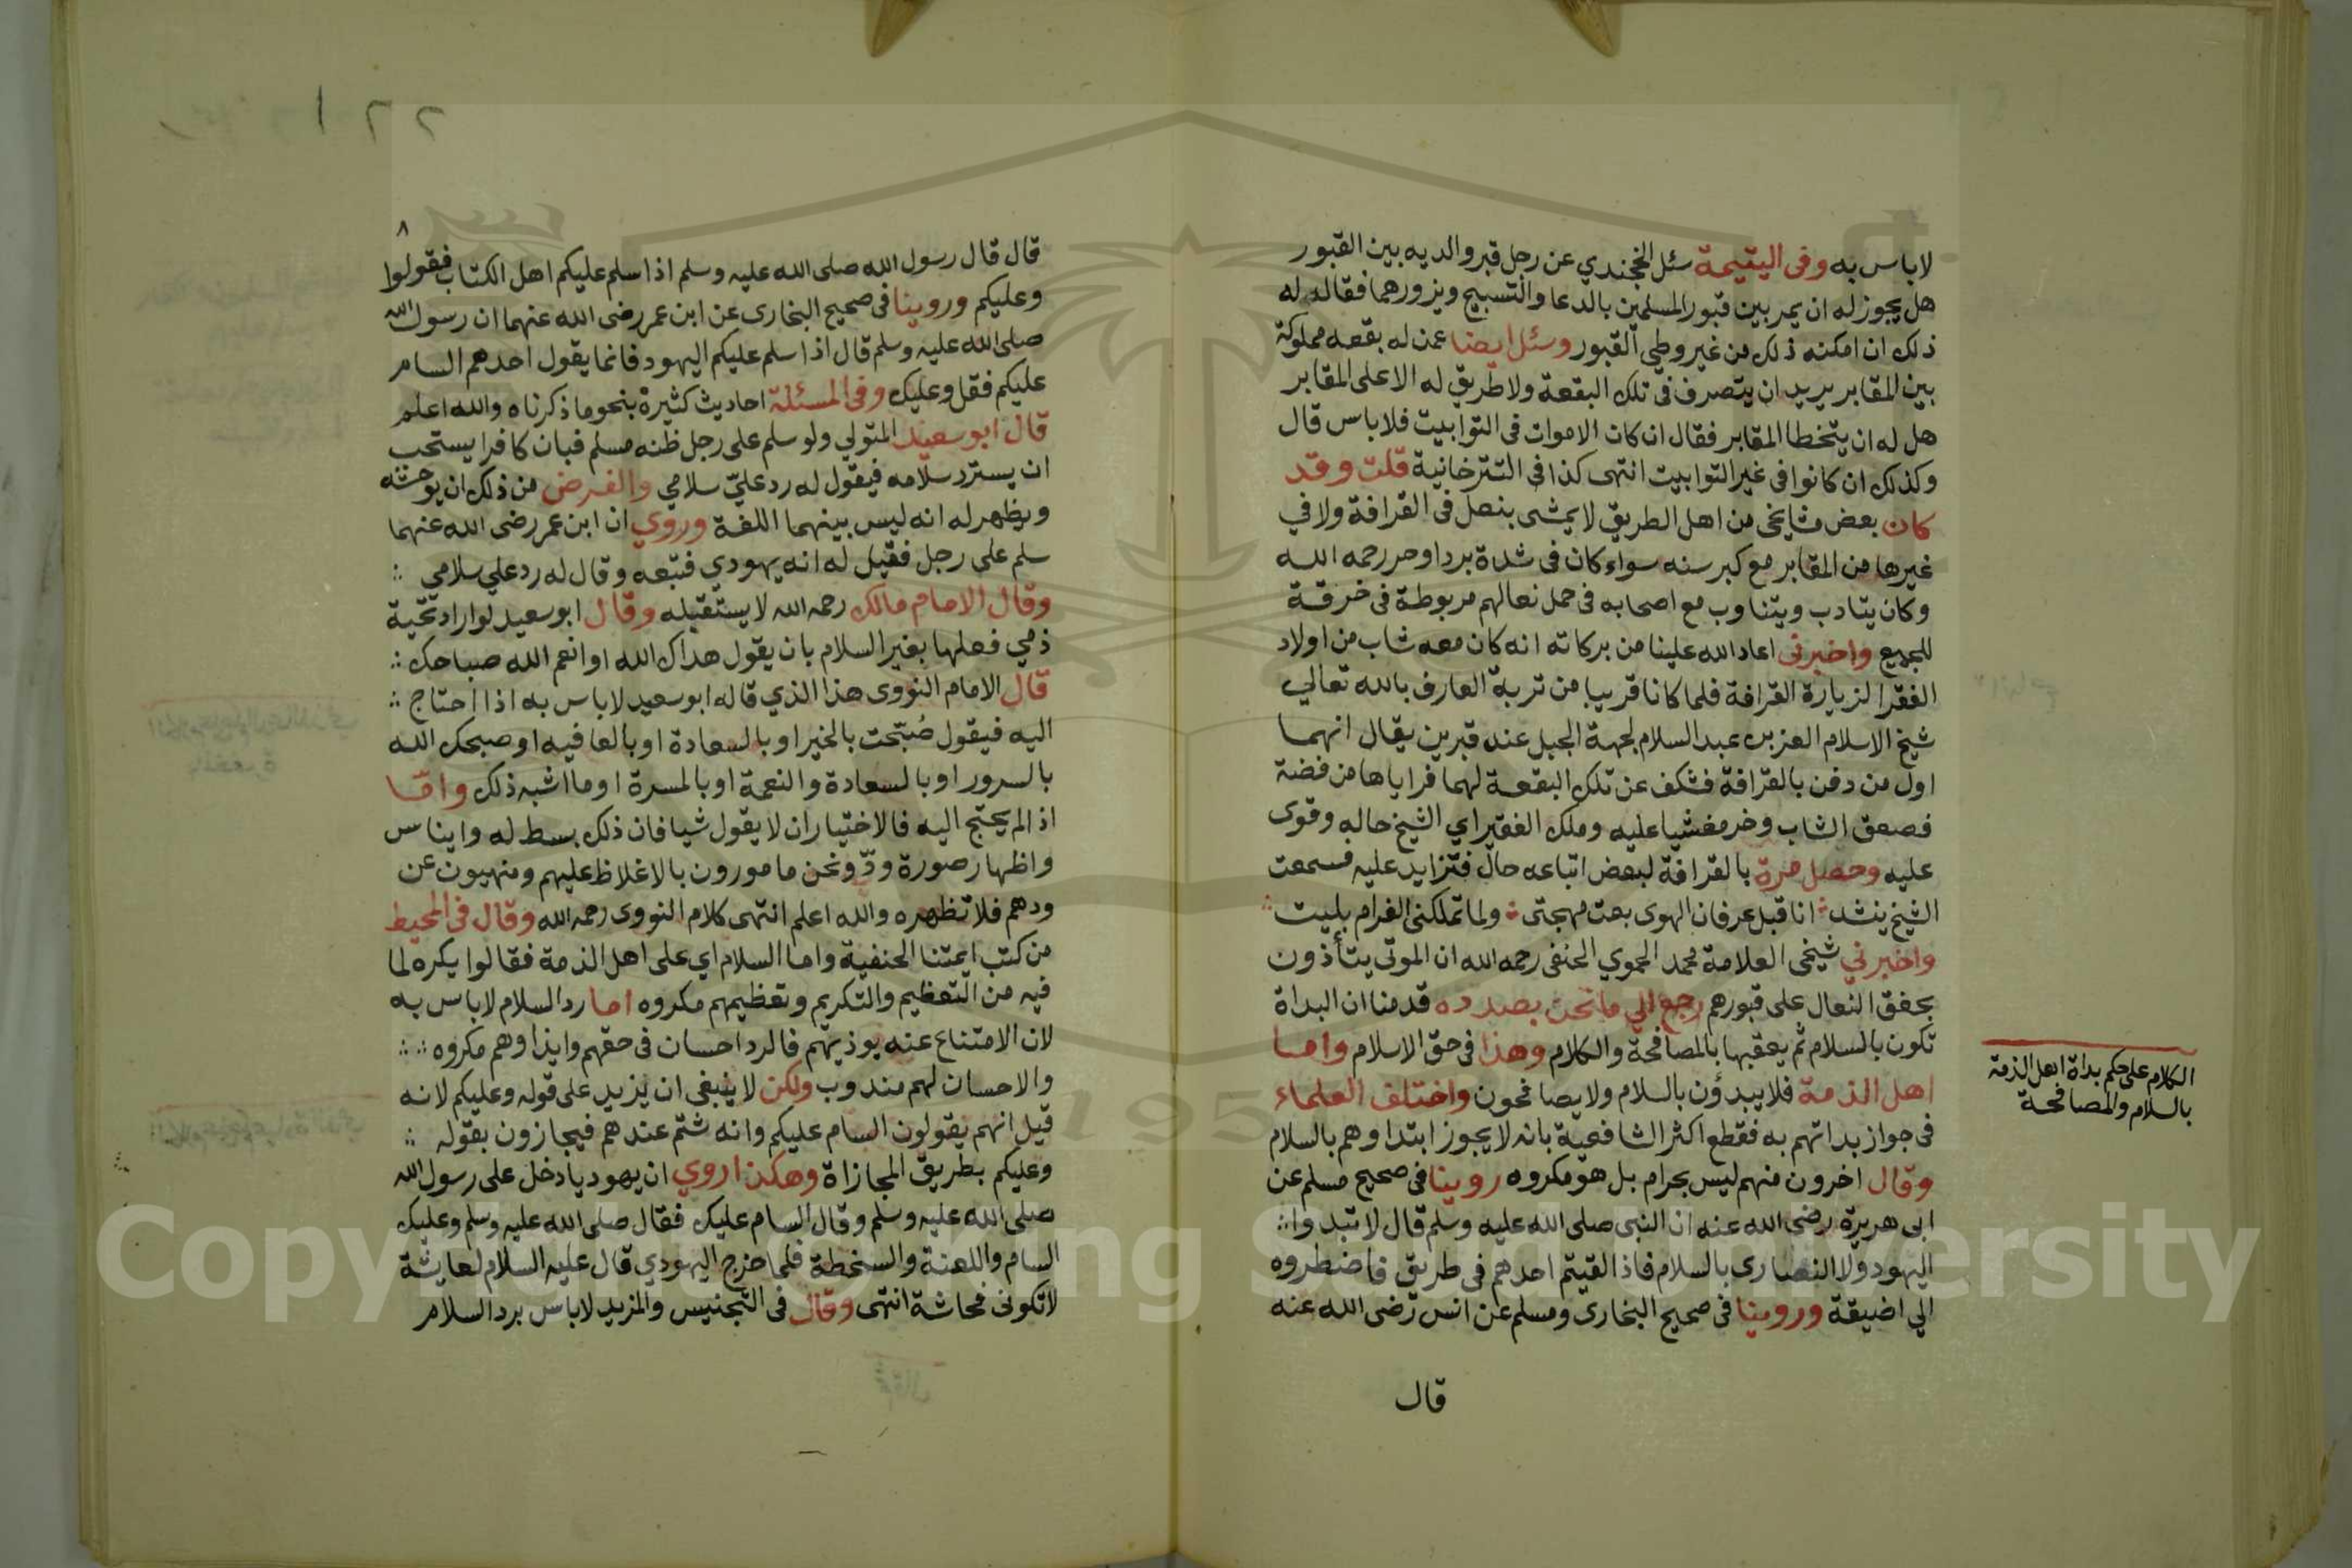 لاباس به وفى اليتيمة سئل الخجندي عن رجل قبر والديه بين القبور
هل يجوز له ان يمر بين قبور المسلمين بالدعا والتسبيح ويزورهما فقال له
ذلك ان امكنه ذلك من غير وطي القبور وسئل ايضا عمن له بقعه مملوكة
بين المقابر يريد ان يتصرف في تلك البقعة ولا طريق له الا على المقابر
هل له ان يتخطا المقابر فقال ان كان الاموات في التوابيت فلاباس قال
وكذلك ان كانوا في غير التوابيت انتهى كذا في التترخانية قلت وقد
كان بعض مشايخى من اهل الطريق لا يمشى بنعل في القرافة ولا في
غيرها من المقابر مع كبر سنه سواء كان في شدة برد او حر رحمه الله
وكان يتادب ويتناوب مع اصحابه في حمل نعالهم مربوطة في خرقة
للجميع واخبرنى اعاد الله علينا من بركاته انه كان معه شاب من اولاد
الفقرا لزيارة القرافة فلما كانا قريبا من تربة العارف بالله تعالي
شيخ الاسلام العز بن عبد السلام لجهة الجبل عند قبرين يقال انهما
اول من دفن بالقرافة فشكف عن تلك البقعة لهما فراياها من فضة
فصعق الشاب وخر مغشيا عليه وملك الفقير اي الشيخ حاله وقوى
عليه وحصل مرة بالقرافة لبعض اتباعه حال فتزايد عليه فسمعت
الشيخ ينشد انا قبل عرفان الهوى بعت مهجتى ولما تملكنى الغرام بليت
واخبرني شيخى العلامة محمد الحموي الحنفى رحمه الله ان الموتى يتأذون
بخفق النعال على قبورهم رجع الي ما نحن بصدده قدمنا ان البداة
تكون بالسلام ثم يعقبها بالمصافحة والكلام وهذا في حق الاسلام واما
اهل الذمة فلا يبدؤن بالسلام ولا يصافحون واختلف العلماء
في جواز بداتهم به فقطع اكثر الشافعية بانه لا يجوز ابتداوهم بالسلام
وقال اخرون منهم ليس بحرام بل هو مكروه روينا في صحيح مسلم عن
ابى هريرة رضى الله عنه ان النبى صلى الله عليه وسلم قال لا تبدوا
اليهود ولا النصارى بالسلام فاذا لقيتم احدهم في طريق فاضطروه
الي اضيقة وروينا في صحيح البخارى ومسلم عن انس رضى الله عنه
قال
الكلام على حكم بداة اهل الذمة
بالسلام والمصافحة
١٢٢
٨
قال قال رسول الله صلى الله عليه وسلم اذا سلم عليكم اهل الكتاب فقولوا
وعليكم وروينا في صحيح البخارى عن ابن عمر رضى الله عنهما ان رسول الله
صلى الله عليه وسلم قال اذا سلم عليكم اليهود فانما يقول احدهم السام
عليكم فقل وعليك وفي المسئلة احاديث كثيرة بنحو ما ذكرناه والله اعلم
قال ابو سعيد المتولي ولو سلم على رجل ظنه مسلم فبان كافرا يستحب
ان يسترد سلامه فيقول له رد عليّ سلامي والغرض من ذلك ان يوحشه
ويظهر له انه ليس بينهما اللفة وروي ان ابن عمر رضى الله عنهما
سلم على رجل فقيل له انه يهودي فتبعه وقال له رد علي سلامي
وقال الامام مالك رحمه الله لا يستقبله وقال ابو سعيد لو اراد تحية
ذمي فعلها بغير السلام بان يقول هداك الله او انعم الله صباحك
قال الامام النووى هذا الذي قاله ابو سعيد لاباس به اذا احتاج
اليه فيقول صُبّحت بالخير او بالسعادة او بالعافيه او صبحك الله
بالسرور او بالسعادة والنعمة او بالمسرة او ما اشبه ذلك وامّا
اذا لم يحتج اليه فالاختيار ان لا يقول شيا فان ذلك بسط له وايناس
واظهار صورة ودّ ونحن مامورون بالاغلاظ عليهم ومنهيون عن
ودهم فلا تظهره والله اعلم انتهى كلام النووى رحمه الله وقال في المحيط
من كتب ايمتنا الحنفية واما السلام اي على اهل الذمة فقالوا يكره لما
فيه من التعظيم والتكريم وتعظيمهم مكروه اما رد السلام لاباس به
لان الامتناع عنه يوذيهم فالرد احسان في حقهم وايذاوهم مكروه
والاحسان لهم مندوب ولكن لا ينبغى ان يزيد على قوله وعليكم لانه
قيل انهم يقولون السام عليكم وانه شتم عندهم فيجازون بقوله
وعليكم بطريق المجازاة وهكذا روي ان يهوديا دخل على رسول الله
صلى الله عليه وسلم وقال السام عليك فقال صلى الله عليه وسلم وعليك
السام واللعنة والسخطة فلما خرج اليهودي قال عليه السلام لعايشة
لا تكونى فحاشة انتهى وقال في التجنيس والمزيد لاباس برد السلام
Copyright © King Saud University
195